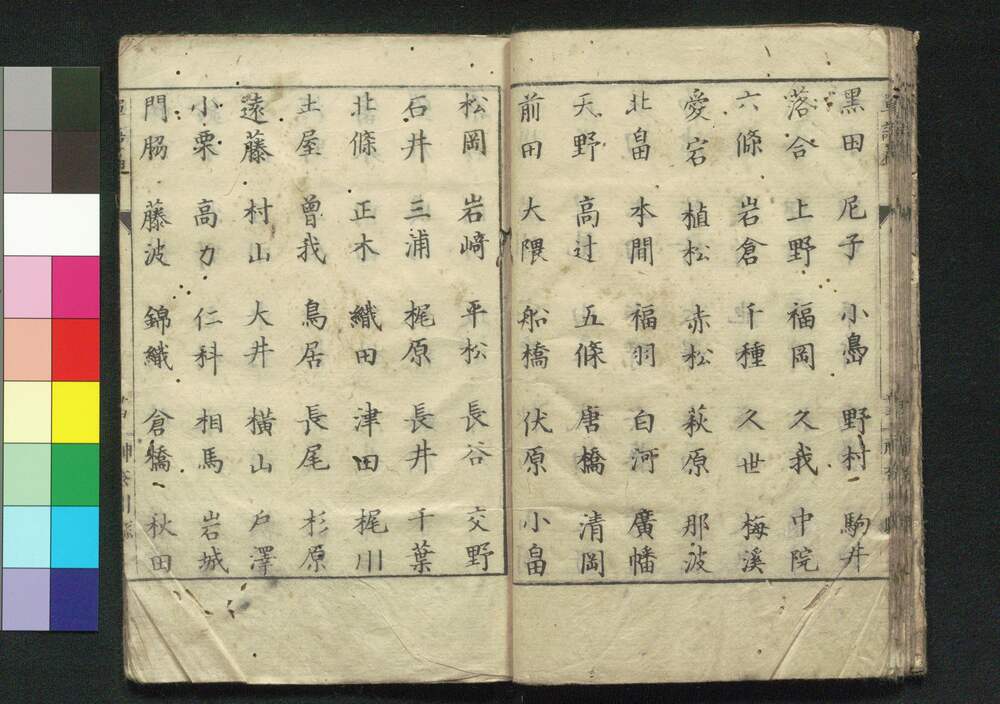 黒田 尼子 小島 野村 駒井
落合 上野 福岡 久我 中院
六條 岩倉 千種 久世 梅溪
愛宕 植松 赤松 萩原 那波
北畠 本間 福羽 白河 廣幡
天野 高辻 五條 唐橋 清岡
前田 大隈 船橋 伏原 小畠
松岡 岩﨑 平松 長谷 交野
石井 三浦 梶原 長井 千葉
北條 正木 織田 津田 梶川
土屋 曽我 鳥居 長尾 杉原
遠藤 村山 大井 橫山 戶澤
小栗 高力 仁科 相馬 岩城
門脇 藤波 錦織 倉橋 秋田